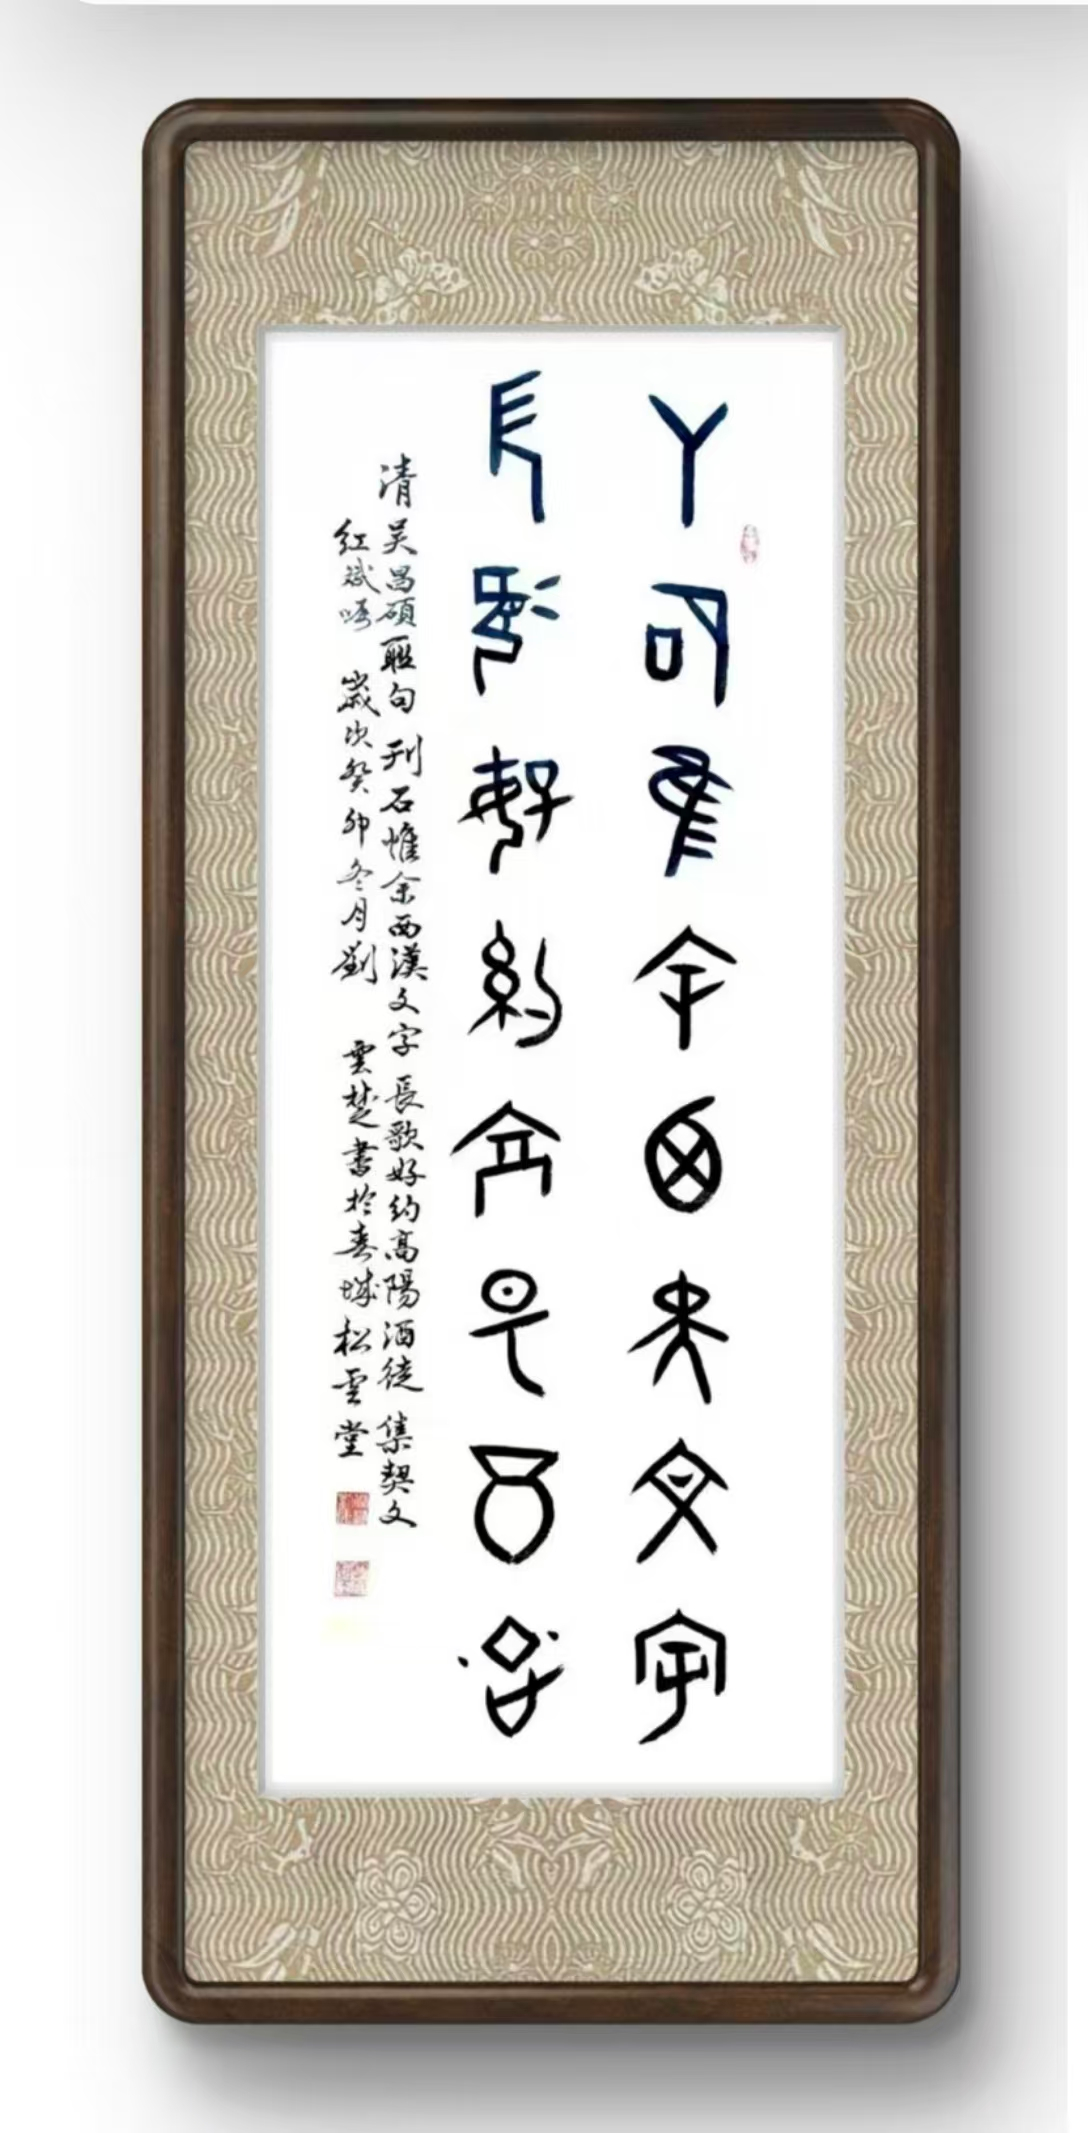 刊石惟余西漢文字
長歌好約高陽酒徒
清吴昌碩聯句 刊石惟余西漢文字 長歌好約高陽酒徒 集契文
紅斌 歲次癸卯冬月劉 雲楚書於春城松雲堂